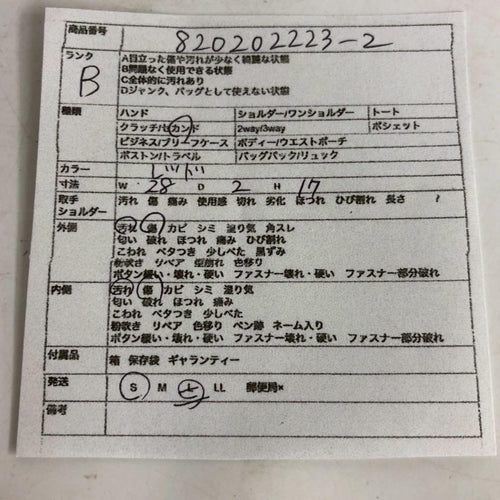 商品番号 820202223-2
ランク B
A目立った傷や汚れが少なく綺麗な状態
B問題なく使用できる状態
C全体的に汚れあり
Dジャンク、バッグとして使えない状態
種類 ハンド ショルダー/ワンショルダー トート
クラッチ/セカンド 2way/3way ポシェット
ビジネス/ブリーフケース ボディー/ウエストポーチ
ボストン/トラベル バッグパック/リュック
カラー レッド
寸法 W 28 D 2 H 17
取手 ショルダー 汚れ 傷 痛み 使用感 切れ 劣化 ほつれ ひび割れ 長さ
外側 汚れ 傷 カビ シミ 湿り気 角スレ
匂い 破れ ほつれ 痛み ひび割れ
こわれ ベタつき 少しべた 黒ずみ
粉吹き リペア 型崩れ 色移り
ボタン緩い・壊れ・硬い ファスナー壊れ・硬い ファスナー部分破れ
内側 汚れ 傷 カビ シミ 湿り気
匂い 破れ ほつれ 痛み
こわれ ベタつき 少しべた
粉吹き リペア 色移り ペン跡 ネーム入り
ボタン緩い・壊れ・硬い ファスナー壊れ・硬い ファスナー部分破れ
付属品 箱 保存袋 ギャランティー
発送 S M L LL 郵便局×
備考